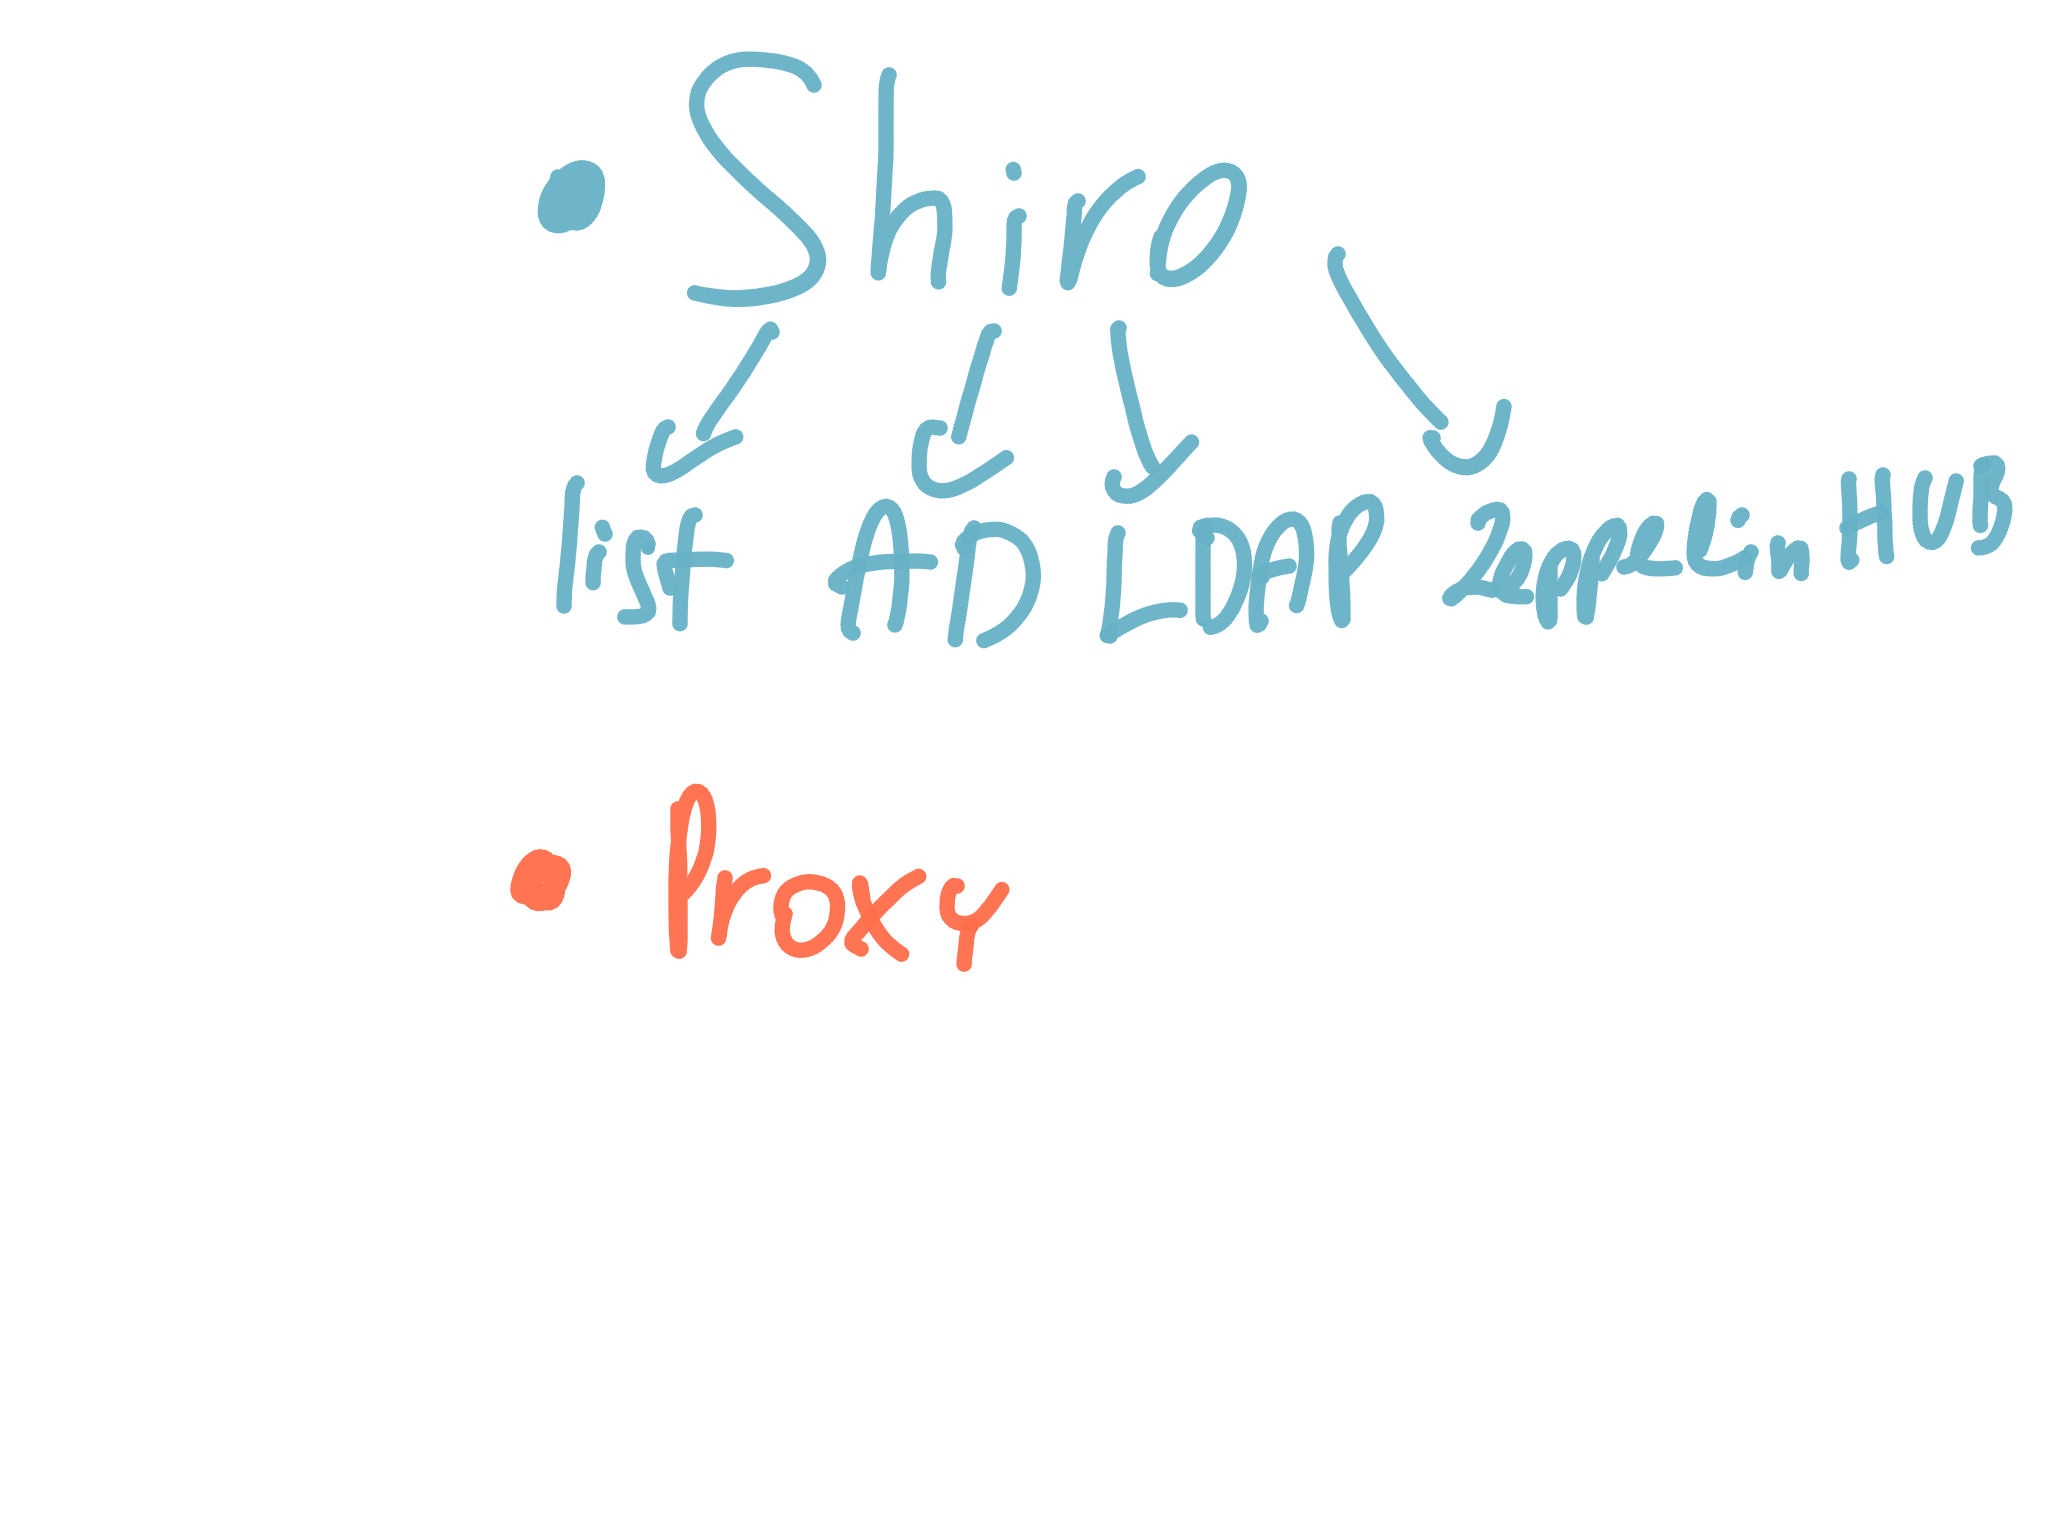 • Shiro
list AD LDAP Zeppelin HUB
• Proxy